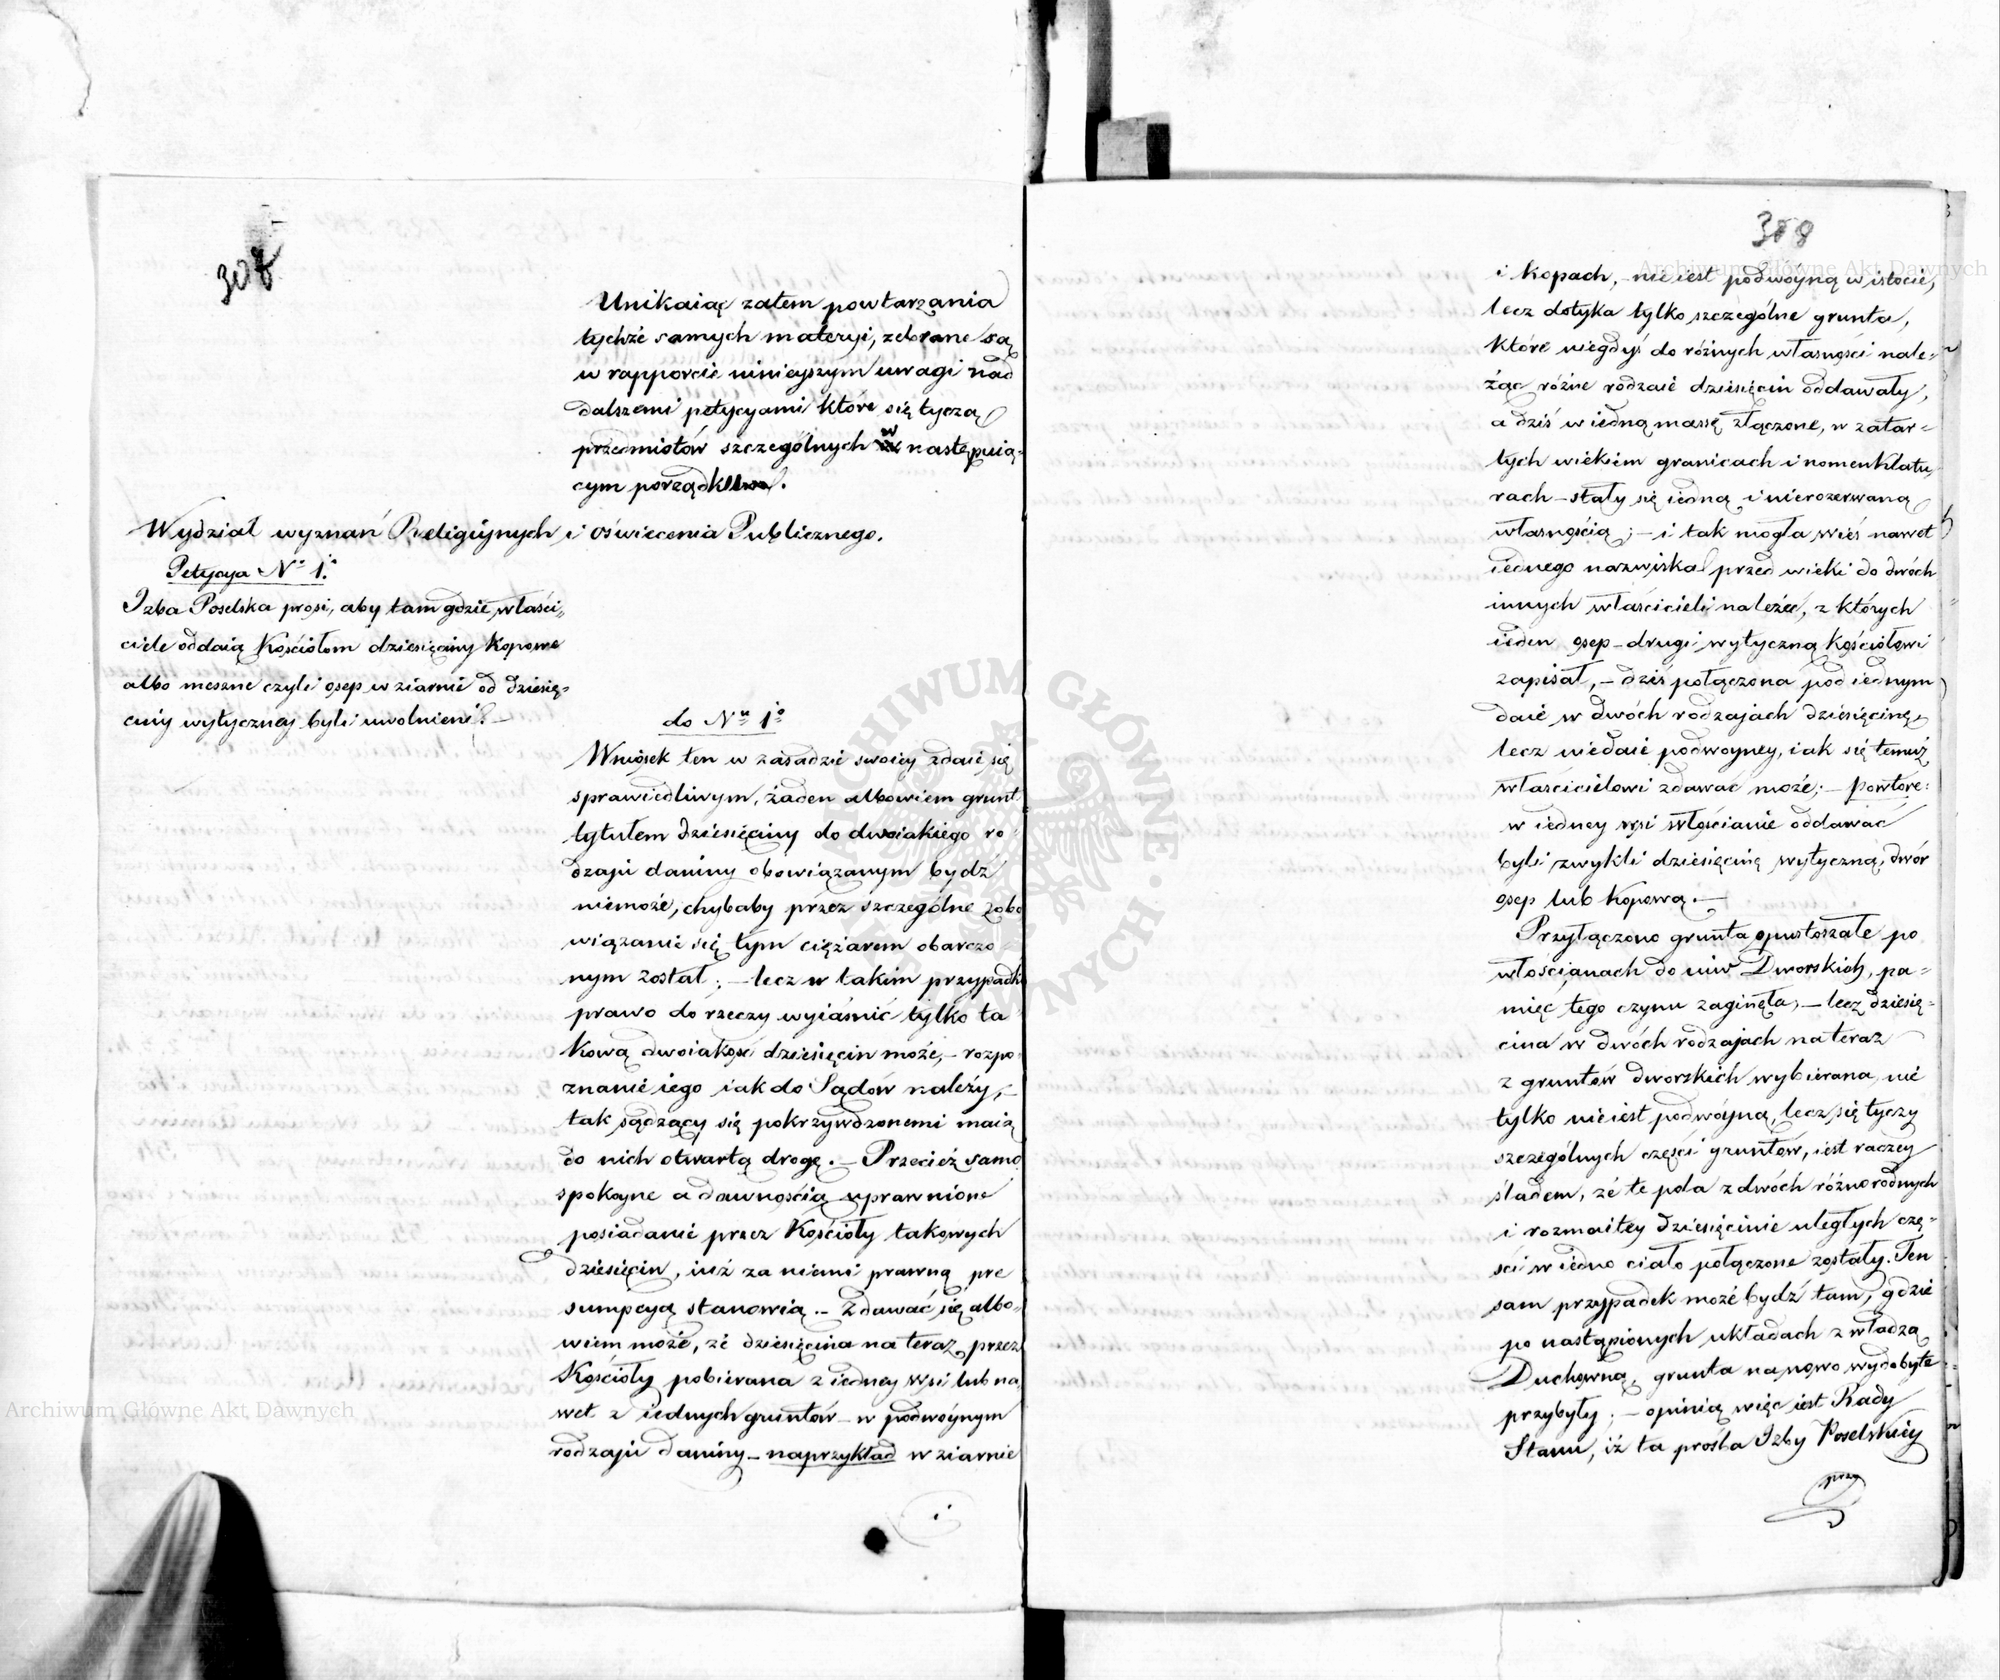 308
Unikaiąc zatem powtarzania
tychże samych materyi, zebrane są
w rapporcie niniejszym uwagi nad
dalszemi petycyami które się tyczą
przedmiotów szczególnych w następuią-
cym porządku.
Wydział wyznań Religiynych i oświecenia Publicznego.
Petycya Nº 1º
Izba Poselska prosi, aby tam gdzie właści-
ciele oddaią Kościołom dziesięciny kopowe
albo meszne czyli osep w ziarnie od dziesię-
ciny wytyczney byli uwolnieni.-
do Nu 1º
Wniosek ten w zasadzie swoiey zdaie się
sprawiedliwym, żaden albowiem grunt
tytułem dziesięciny do dwoiakiego ro-
dzaju daniny obowiązanym bydź
niemoże, chybaby przez szczególne zobo
wiązanie się tym ciężarem obarczo-
nym został; - lecz w takim przypadku
prawo do rzeczy wyiaśnić tylko ta
kową dwoiakość dziesięcin może, - rozpo-
znanie iego iak do Sądów należy, -
tak sądzący się pokrzywdzonemi maią
do nich otwartą drogę. - Przecież samo
spokoyne a dawnością uprawnione
posiadanie przez Kościoły takowych
dziesięcin, iuż za niemi prawną pre
sumpcyą stanowią. - Zdawać się albo-
wiem może, że dziesięcina na teraz przez
Kościoły pobierana z iedney wsi lub na-
wet z iednych gruntów - w podwóynym
rodzaju daniny - naprzykład w ziarnie
i
308
i kopach, - nie iest podwóyną w istocie,
lecz dotyka tylko szczególne grunta,
które niegdyś do różnych własności nale-
żąc różne rodzaie dziesięcin oddawały,
a dziś w iedną massę złączone, w zatar-
tych wiekiem granicach i nomenklatu-
rach - stały się iedną i nierozerwaną
własnością; - i tak mogła wieś nawet
iednego nazwiska przed wieki do dwóch
innych właścicieli należeć, z których
ieden osep - drugi wytyczną Kościołowi
zapisał, - dziś połączona pod iednym
daie w dwóch rodzajach dziesięcinę,
lecz niedaie podwoyney, iak się temuż
właścicielowi zdawać może; - powtóre:
w iedney wsi włościanie oddawać
byli zwykli dziesięcinę wytyczną, dwór
osep lub kopową. -
Przyłączono grunta opustoszałe po
włościanach do niw Dworskich, pa-
mięć tego czynu zaginęła, - lecz dziesię-
cina w dwóch rodzajach na teraz
z gruntów dworskich wybierana, nie
tylko nieiest podwóyną, lecz się tyczy
szczególnych części gruntów, iest raczey
śladem, że te pola z dwóch różnorodnych
i rozmaitey dziesięcinie uległych czę-
ści w iedno ciało połączone zostały. Ten
sam przypadek może bydź tam, gdzie
po nastąpionych układach z władzą
Duchowną, grunta na nowo wydobyte
przybyły; - opinią więc iest Rady
Stanu, iż ta prośba Izby Poselskiey
przy
Archiwum Główne Akt Dawnych
Archiwum Główne Akt Dawnych
ARCHIWUM GŁÓWNE AKT DAWNYCH